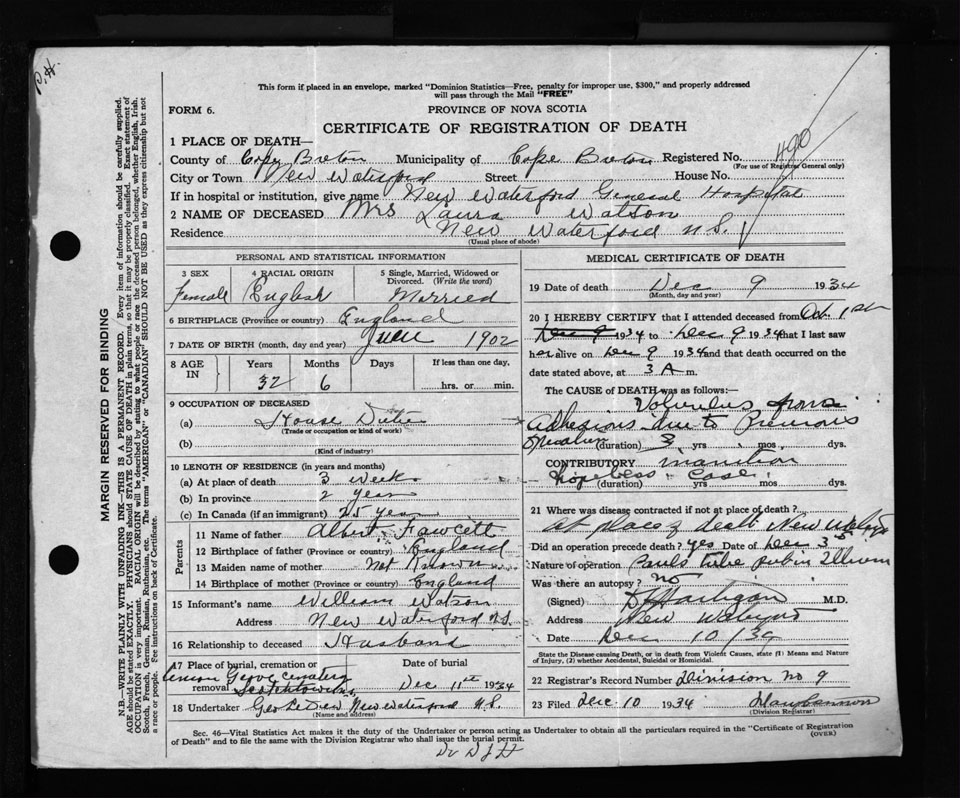 This form if placed in an envelope, marked "Dominion Statistics—Free, penalty for improper use, $300," and properly addressed
will pass through the Mail "FREE"
FORM 6.
PROVINCE OF NOVA SCOTIA
CERTIFICATE OF REGISTRATION OF DEATH
1 PLACE OF DEATH—
County of Cape Breton Municipality of Cape Breton Registered No. 490
(For use of Registrar General only)
City or Town New Waterford Street House No.
If in hospital or institution, give name New Waterford General Hospital
2 NAME OF DECEASED Mrs Laura Watson
Residence New Waterford N.S.
(Usual place of abode)
PERSONAL AND STATISTICAL INFORMATION
3 SEX 4 RACIAL ORIGIN 5 Single, Married, Widowed or
Divorced. (Write the word)
Female English Married
6 BIRTHPLACE (Province or country) England
7 DATE OF BIRTH (month, day and year) 1902
8 AGE IN Years Months Days If less than one day,
32 6 hrs. or min.
9 OCCUPATION OF DECEASED
(a) House
(Trade or occupation or kind of work)
(b)
(Kind of industry)
10 LENGTH OF RESIDENCE (in years and months)
(a) At place of death 3 weeks
(b) In province 2 years
(c) In Canada (if an immigrant) 25 years
Parents
11 Name of father Albert Fawcett
12 Birthplace of father (Province or country) England
13 Maiden name of mother not Known
14 Birthplace of mother (Province or country) England
15 Informant's name William Watson
Address New Waterford N.S.
16 Relationship to deceased Husband
17 Place of burial, cremation or Date of burial
removal Grove Cemetery
Scotchtown Dec 11th 1934
18 Undertaker New Waterford N.S.
(Name and address)
MEDICAL CERTIFICATE OF DEATH
19 Date of death Dec 9 1934
(Month, day and year)
20 I HEREBY CERTIFY that I attended deceased from 1st
Dec 9 1934 to Dec 9 1934 that I last saw
her alive on Dec 9 1934 and that death occurred on the
date stated above, at 3 A m.
The CAUSE OF DEATH was as follows:
Volvulus from
adhesions due to Previous
Operation (duration) 3 yrs mos dys.
CONTRIBUTORY inanition
hopeless case
(duration) yrs mos dys.
21 Where was disease contracted if not at place of death?
at place of death New
Did an operation precede death? yes Date of Dec 3rd
Nature of operation Pauls tube put in Illeum
Was there an autopsy? no
(Signed) M.D.
Address New
Date Dec 10/34
State the Disease causing Death, or in death from Violent Causes, state (1) Means and
Nature of Injury, (2) whether Accidental, Suicidal or Homicidal.
22 Registrar's Record Number Division no 9
23 Filed Dec 10 1934
(Division Registrar)
Sec. 46—Vital Statistics Act makes it the duty of the Undertaker or person acting as Undertaker to obtain all the particulars required in the "Certificate of Registration
of Death" and to file the same with the Division Registrar who shall issue the burial permit.
(OVER)
MARGIN RESERVED FOR BINDING
N.B.—WRITE PLAINLY WITH UNFADING INK—THIS IS A PERMANENT RECORD. Every item of information should be carefully supplied.
AGE should be stated EXACTLY. PHYSICIANS should STATE CAUSE OF DEATH in plain terms, so that it may be properly classified. Exact statement of
OCCUPATION is very important. RACIAL ORIGIN will be described by stating to what people or race the deceased person belonged, whether English, Irish,
Scotch, French, German, Russian, Ruthenian, etc. The terms "AMERICAN" or "CANADIAN" SHOULD NOT BE USED as they express citizenship but not
a race or people. See instructions on back of Certificate.